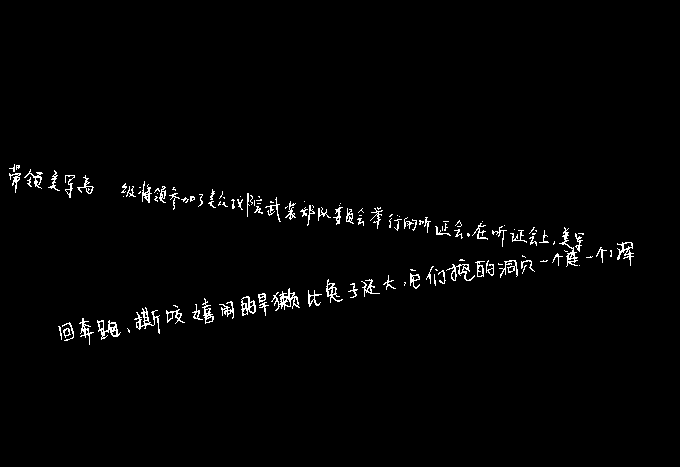 带领美军高 级将领参加了美众议院武装部队委员会举行的听证会。在听证会上,美军
回奔跑、撕咬嬉闹的旱獭比兔子还大,它们挖的洞穴一个连一个,浑